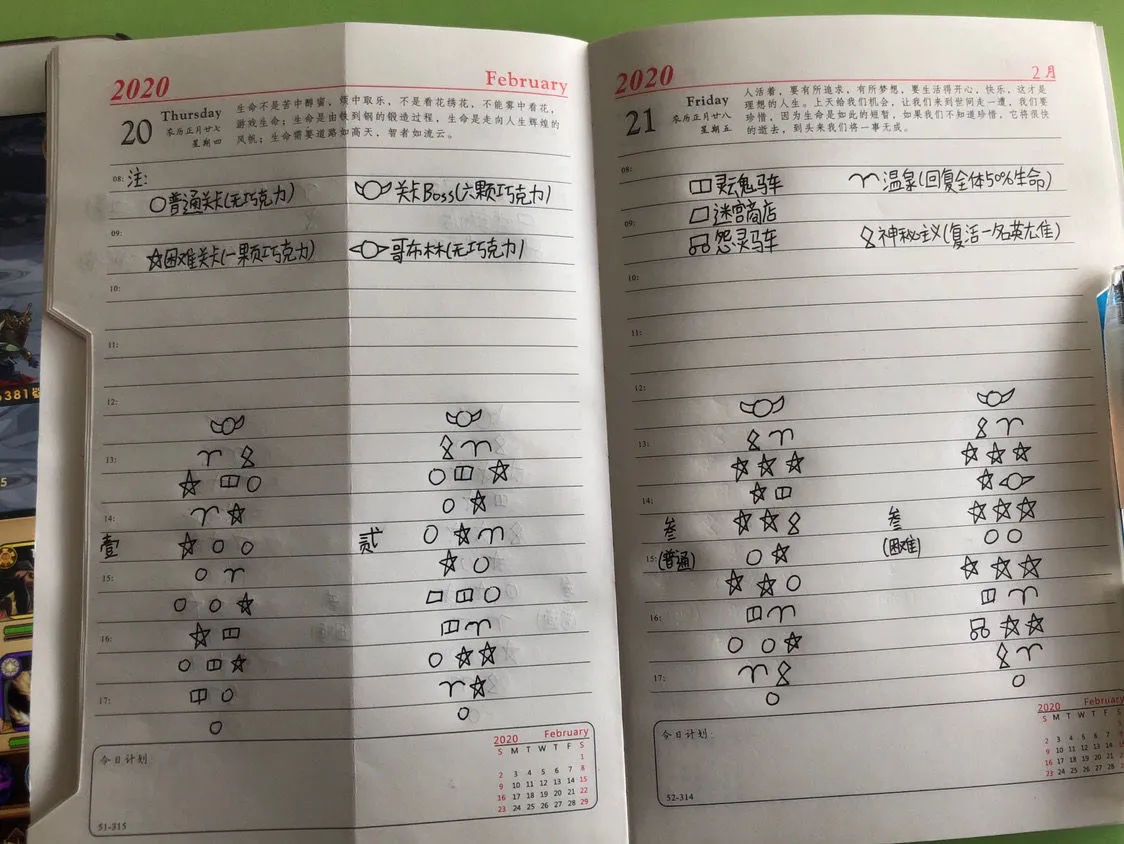 2020 February
20 Thursday
农历正月廿七
星期四
生命不是苦中醇蜜，烦中取乐，不是看花绣花，不能雾中看花，
游戏生命；生命是由铁到钢的锻造过程，生命是走向人生辉煌的
风帆；生命需要道路如高天，智者如流云。
08: 注:
○普通关卡(无巧克力) 关卡Boss(六颗巧克力)
09:
☆困难关卡(一颗巧克力) 哥布林(无巧克力)
10:
11:
12:
13:
14:
壹 贰
15:
16:
17:
今日计划:
51-315
2020 February
S M T W T F S
1
2 3 4 5 6 7 8
9 10 11 12 13 14 15
16 17 18 19 20 21 22
23 24 25 26 27 28 29
2020 2月
21 Friday
农历正月廿八
星期五
人活着，要有所追求，有所梦想，要生活得开心，快乐，这才是
理想的人生。上天给我们机会，让我们来到世间走一遭，我们要
珍惜，因为生命是如此的短暂，如果我们不知道珍惜，它将很快
的逝去，到头来我们将一事无成。
08:
灵魂马车 温泉(回复全体50%生命)
迷宫商店
09:
怨灵马车 神秘主义(复活一名英尢隹)
10:
11:
12:
13:
14:
叁 叁
15: (普通) (困难)
16:
17:
今日计划:
52-314
2020 February
S M T W T F
2 3 4 5 6 7
9 10 11 12 13 14
16 17 18 19 20 21
23 24 25 26 27 28